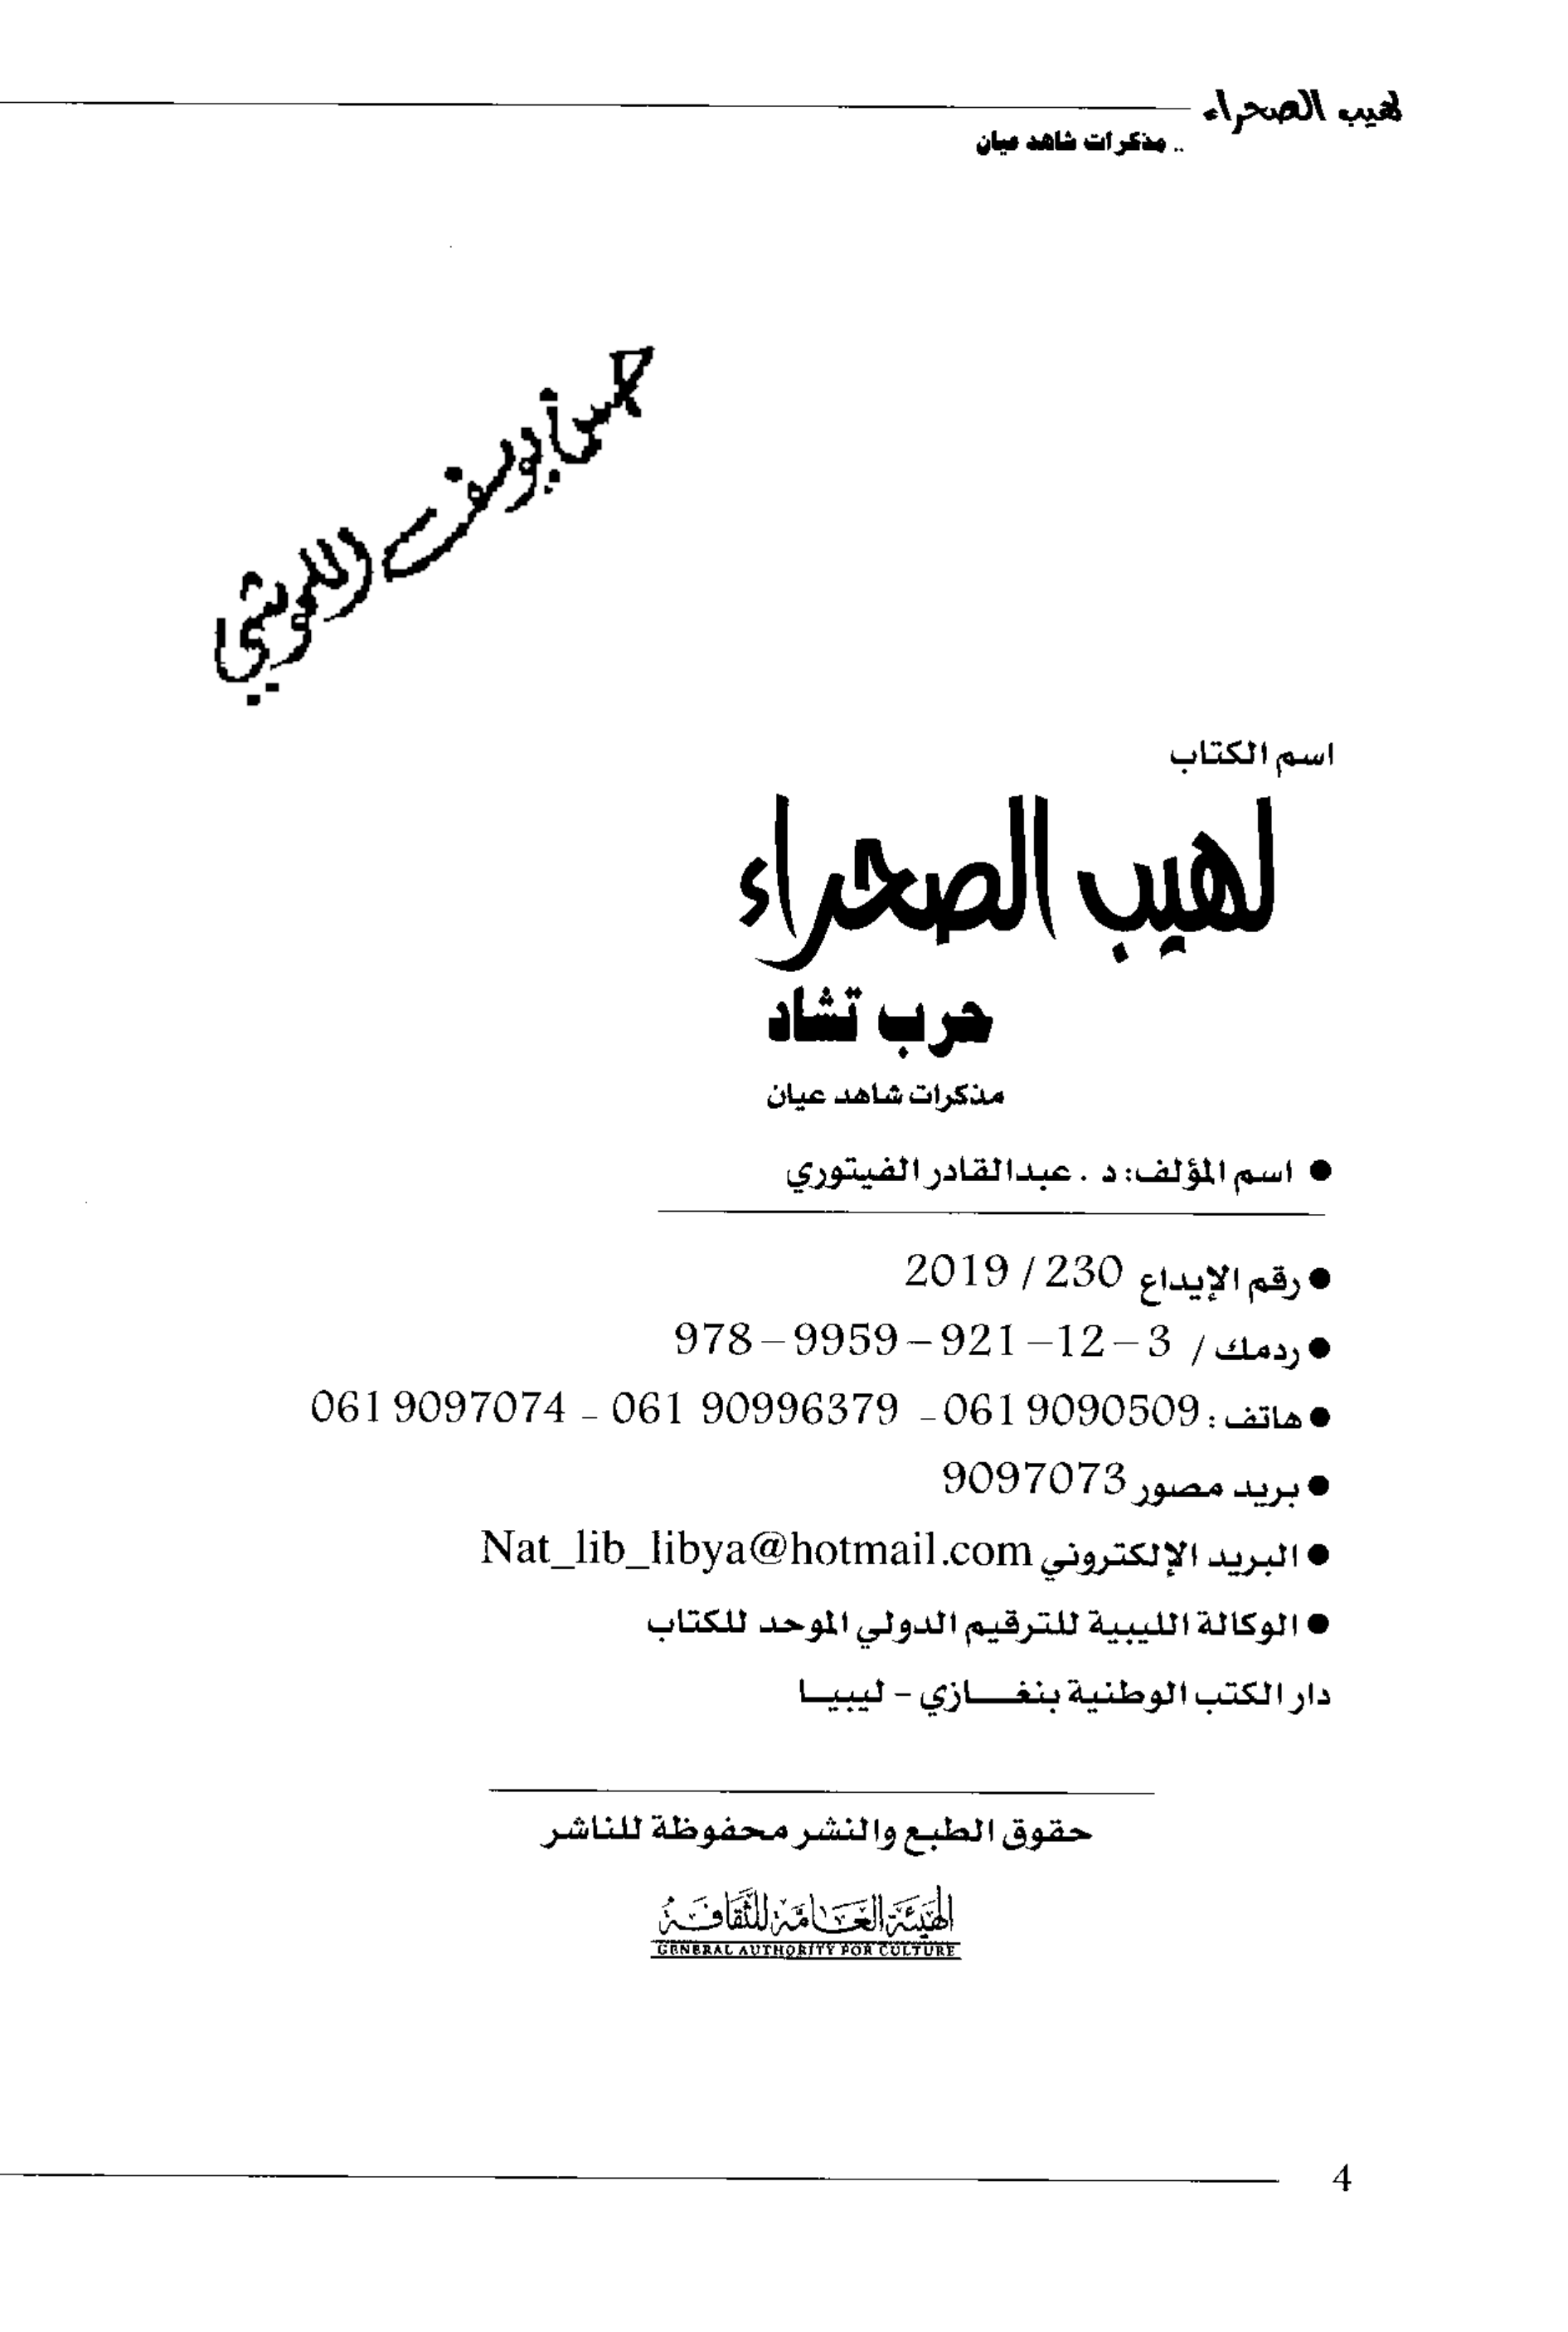 لهيب الصحراء
.. مذكرات شاهد عيان
اسم الكتاب
لهيب الصحراء
حرب تشاد
مذكرات شاهد عيان
● اسم المؤلف: د . عبدالقادر الفيتوري
● رقم الإيداع 230 / 2019
● ردمك / 978-9959-921-12-3
● هاتف : 061 9090509 - 061 90996379 - 061 9097074
● بريد مصور 9097073
● البريد الإلكتروني Nat_lib_libya@hotmail.com
● الوكالة الليبية للترقيم الدولي الموحد للكتاب
دار الكتب الوطنية بنغـــازي - ليبيـا
حقوق الطبع والنشر محفوظة للناشر
الهيئة العامة للثقافة
GENERAL AUTHORITY FOR CULTURE
4